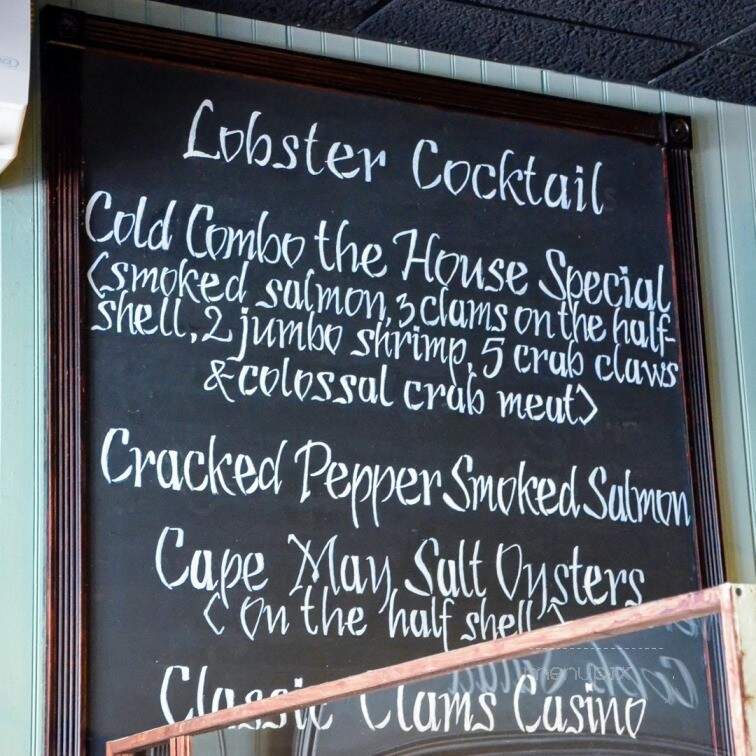 Lobster Cocktail
Cold Combo the House Special
<smoked salmon, 3 clams on the half-
shell, 2 jumbo shrimp, 5 crab claws
& colossal crab meat>
Cracked Pepper Smoked Salmon
Cape May Salt Oysters
< On the half shell >
Classic Clams Casino
menupix